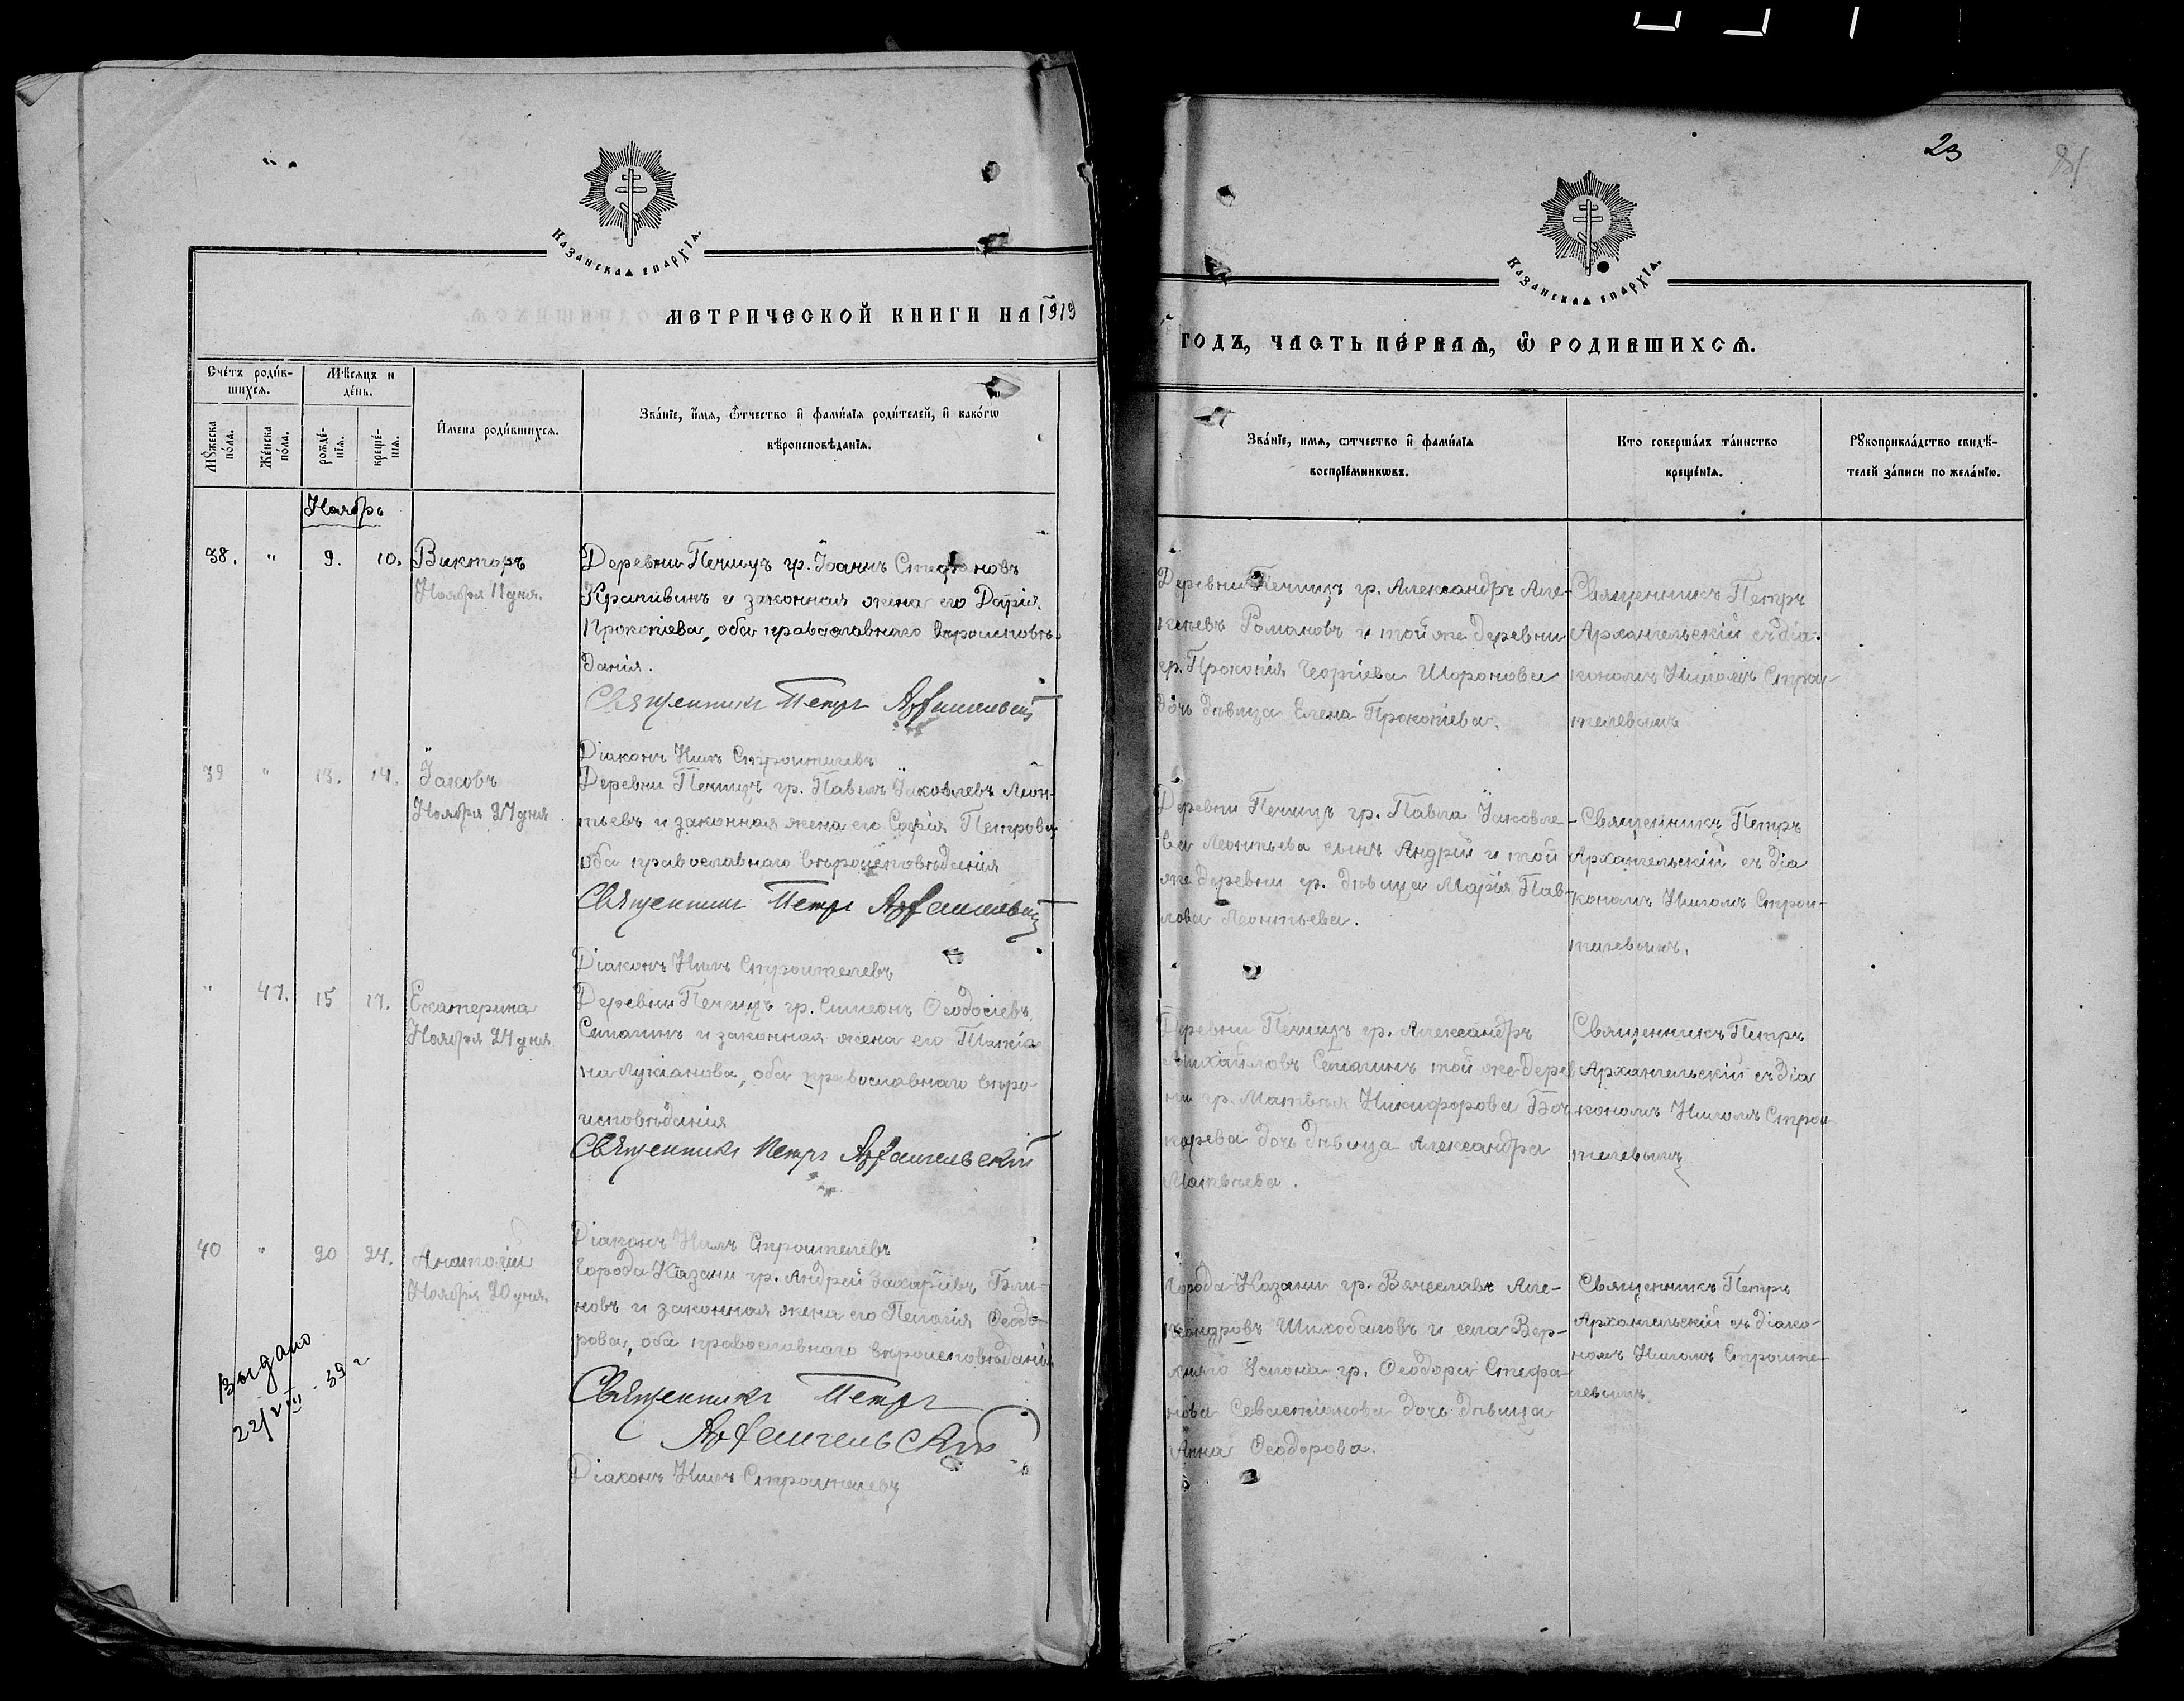 23
81
Казанская епархїа.
Казанская епархїа.
МЕТРИЧЕСКОЙ КНИГИ НА 1919
ГОДЪ, ЧАСТЬ ПЕ́РВАЯ, Ѿ РОДИВШИХСЯ.
Сче́тъ роди́в-
шихся.
Мѣсяцъ и
де́нь.
Мꙋжеска
по́ла.
Же́нска
по́ла.
рожде́-
нїя.
креще́-
нїя.
И҆мена роди́вшихся.
Зва́нїе, и҆́мя, ѻ҆́тчество и҆ фами́лїя роди́телей, и҆ како́гѡ
вѣроисповѣ́данїя.
Зва́нїе, имя, ѻтчество и҆ фами́лїя
воспрїе́мникѡвъ.
Кто соверша́лъ та́инство
креще́нїя.
Рꙋкоприкла́дство свидѣ́-
телей за́писи по жела́нїю.
Ноябрь
38. " 9. 10. Викторъ
Ноября 11 дня.
Деревни Печищъ гр. Іоаннъ Стефановъ
Крапивинъ и законная жена его Дарія
Прокопіева, оба православнаго вѣроисповѣ-
данія.
Священникъ Петръ Архангельскій
Діаконъ Нилъ Строителевъ
Деревни Печищъ гр. Александръ Але-
ксѣевъ Романовъ и той же деревни
гр. Прокопія Георгіева Широнова
дочь дѣвица Елена Прокопіева.
Священникъ Петръ
Архангельскій съ діа-
кономъ Ниломъ Строи-
телевымъ
39 " 13. 14. Іаковъ
Ноября 27 дня
Деревни Печищъ гр. Павелъ Іаковлевъ Леон-
тьевъ и законная жена его Софія Петрова
оба православнаго вѣроисповѣданія
Священникъ Петръ Архангельскій
Діаконъ Нилъ Строителевъ
Деревни Печищъ гр. Павла Іаковле-
ва Леонтьева сынъ Андрей и той
же деревни гр. дѣвица Марія Пав-
лова Леонтьева.
Священникъ Петръ
Архангельскій съ діа
кономъ Ниломъ Строи-
телевымъ.
" 47. 15 17. Екатерина
Ноября 24 дня
Деревни Печищъ гр. Симеонъ Ѳеодосіевъ
Сепагинъ и законная жена его Татіа
на Лукіанова, оба православнаго вѣро-
исповѣданія
Священникъ Петръ Архангельскій
Діаконъ Нилъ Строителевъ
Деревни Печищъ гр. Александръ
Михайловъ Сепагинъ той же дерев
ни гр. Матвѣя Никифорова Боч
карева дочь дѣвица Александра
Матвѣева.
Священникъ Петръ
Архангельскій съ діа
кономъ Ниломъ Строи
телевымъ
40 " 20 24. Анатолій
Ноября 20 дня
Города Казани гр. Андрей Захаріевъ Бли-
новъ и законная жена его Пелагія Ѳеодо-
рова, оба православнаго вѣроисповѣданія
Священникъ Петръ
Архангельскій
Діаконъ Нилъ Строителевъ
Города Казани гр. Вячеславъ Але-
ксандровъ Шихобаловъ и села Вер-
хняго Услона гр. Ѳеодора Стефа-
нова Севастіанова дочь дѣвица
Анна Ѳеодорова.
Священникъ Петръ
Архангельскій съ діако-
номъ Ниломъ Строите-
левымъ
выдано
22/VIII - 39 г